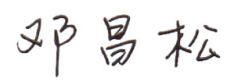 邓昌松